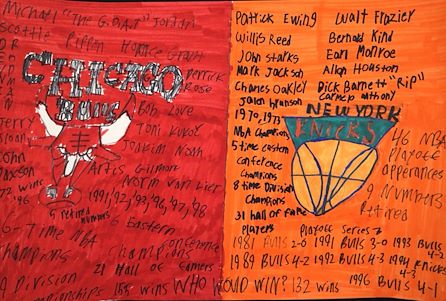 Michael "The G.O.A.T" Jordan
Scottie Pippen Horace Grant
Derrick
Rose
CHICAGO
BULLS
Bob Love
Jerry
Sloan
Toni Kukoc
Joakim Noah
John
Paxson
Artis Gilmore
Norm Van Lier
72 wins
'96
1991, '92, '93, '96, '97, '98
5 retired
numbers
6-Time NBA
Champions
6 Eastern
Conference
Champions
21 Hall of Famers
9 Division
Championships
155 wins WHO WOULD WIN? 132 wins
Patrick Ewing
Walt Frazier
Willis Reed
Bernard Kind
John Starks
Earl Monroe
Mark Jackson
Allan Houston
Charles Oakley
Dick Barnett "Rip"
Carmelo Anthony
Jalen Brunson
NEW YORK
KNICKS
1970, 1973
NBA Champions
5 time Eastern
Conference
Champions
8 time Division
Champions
31 Hall of Fame
Players
46 NBA
Playoff
apperances
9 Numbers
Retired
Playoff Series→
1981 Bulls 2-0 1991 BULLS 3-0 1993 BULLS 4-2
1989 BULLS 4-2 1992 BULLS 4-3 1994 Knicks 4-3
1996 BULLS 4-1